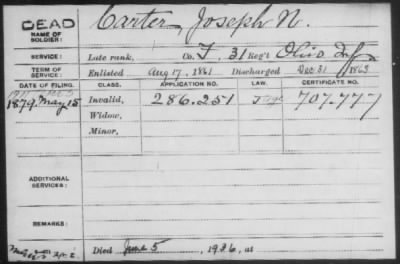 DEAD Carter, Joseph N.
NAME OF SOLDIER:
SERVICE: Late rank, Co. F, 31 Reg't Ohio Inf
TERM OF SERVICE: Enlisted Aug 17, 1861 Discharged Dec 31 1863
DATE OF FILING. CLASS. APPLICATION NO. LAW. CERTIFICATE NO.
1879. May 15 Invalid, 286.251 707.777
Widow,
Minor,
ADDITIONAL SERVICES:
REMARKS:
Died June 5, 1926, at